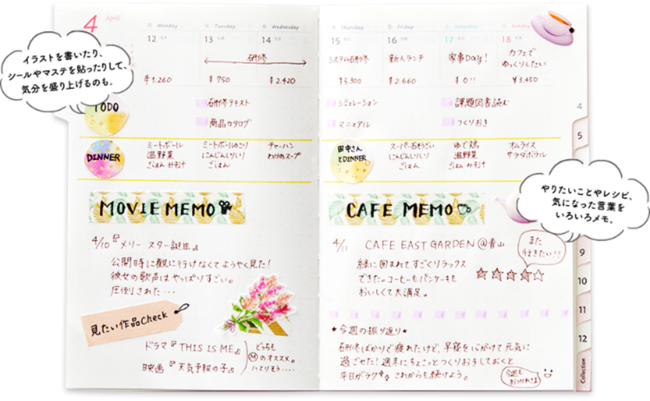 イラストを書いたり、
シールやマステを貼ったりして、
気分を盛り上げるのも。
4 April
Monday
Tuesday
Wednesday
12
13
14
研修
¥1,260
¥750
¥2,420
TODO
研修テキスト
商品カタログ
DINNER
ミートボール
温野菜
ごはん
ミートボールのこり
にんじんしりしり
ごはん
チャーハン
わかめスープ
MOVIE MEMO
4/10 『メリー スター誕生』
公開時に観に行けなくてようやく見た!
彼女の歌声はやっぱりすごい。
圧倒された…
見たい作品Check
ドラマ『THIS IS ME』
映画『天気予報の子』
どちらも
Ⓜのオススメ。
Thursday
Friday
Saturday
Sunday
15
16
17
18
システム研修
新人ランチ
家事Day!
カフェで
ゆっくりしたい
¥3,300
¥2,660
¥0!!
¥3,450
シミュレーション
マニュアル
課題図書読む
つくりおき
田中さん
とDINNER
ゆで鶏
温野菜
ごはん
オムライス
サラダボウル
やりたいことやレシピ、
気になった言葉を
いろいろメモ。
CAFE MEMO
4/11 CAFE EAST GARDEN @青山
緑に囲まれてすごくリラックス
できた。コーヒーもパンケーキも
おいしくて大満足。
また
行きたい!!
★今週の振り返り★
研修ばかりで疲れたけど、早寝を心がけて元気に
過ごせた!週末にちょこっとつくりおきしておくと
平日がラク これからも続けよう。
4
5
9
10
11
12
Collection